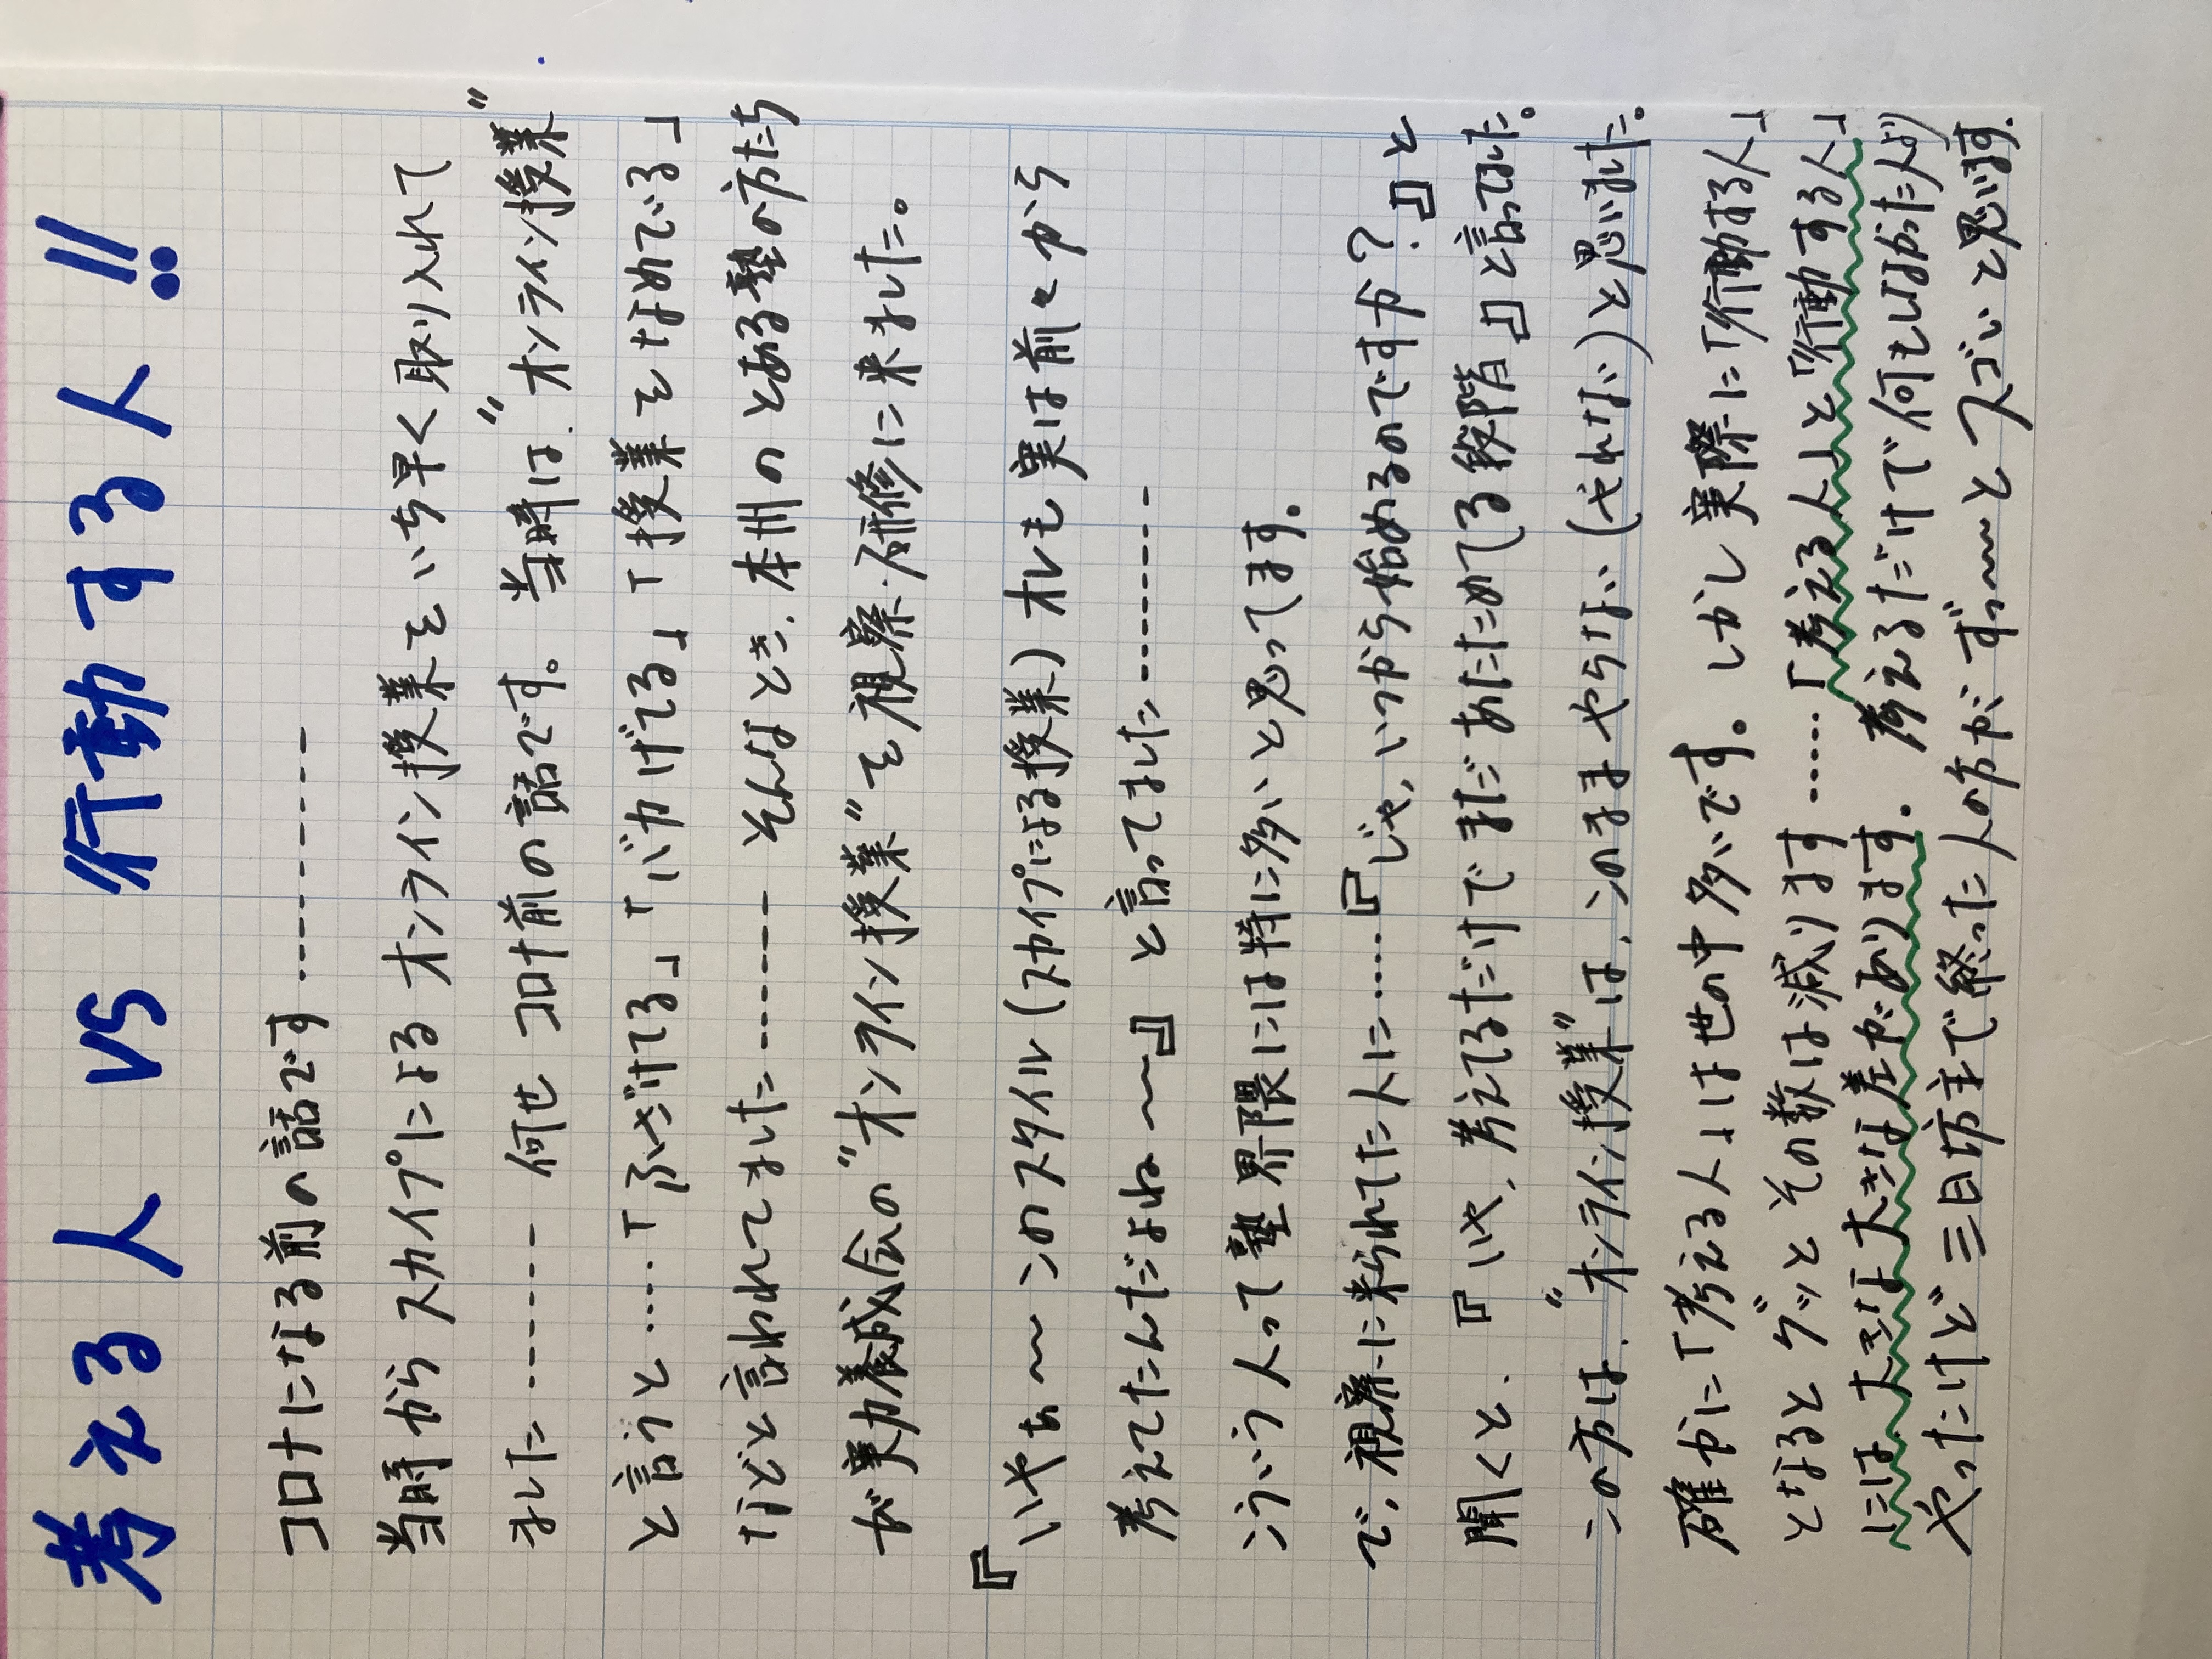 考える人 VS 行動する人!!
コロナになる前の話です…………
当時からスカイプによるオンライン授業をいち早く取り入れて
ました………何せコロナ前の話です。当時は、"オンライン授業"
と言うと……「ふざけてる」「バカげてる」「授業をなめでいる」
などと言われてました………そんなとき、本州のとある塾の方たち
が実力養成会の"オンライン授業"を視察・研修に来ました。
『いやぁ〜このスタイル(スカイプによる授業)オレも実は前々から
考えてたんだよね〜』と言ってました…………
こういう人って塾界隈には特に多いと思ってます。
で、視察に来られてた人に……『じゃ、いつから始めるのですか?』と
聞くと、『いや、考えてるだけでまだあたためてる段階』と言ってました。
この方は、"オンライン授業"は、このままやらない(やれない)と思いました。
確かに「考える人」は世の中多いです。しかし実際に「行動する人」
となるとグッとその数は減ります……「考える人」と「行動する人」
には大きな大きな差があります。考えるだけで何もしなかった人より
やったけど三日坊主で終った人の方がずっ〜とスゴいと思います。